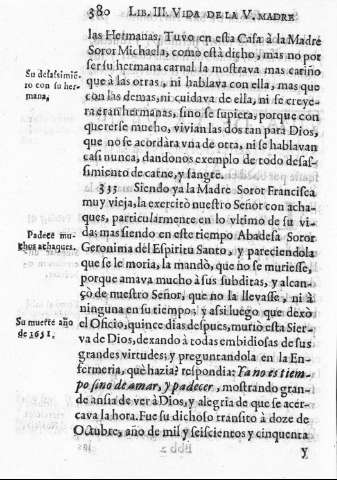 380 LIB. III. VIDA DE LA V. MADRE
las Hermanas. Tuvo en esta Casa à la Madre
Soror Michaela, como està dicho, mas no por
ser su hermana carnal la mostrava mas cariño
que à las otras, ni hablava con ella, mas que
con las demas, ni cuidava de ella, ni se creye-
ra eran hermanas, sino se supiera, porque con
quererse mucho, vivian las dos tan para Dios,
que no se acordàra vna de otra, ni se hablavan
casi nunca, dandonos exemplo de todo desas-
simiento de carne, y sangre.
Su desassimiē-
to con su her-
mana,
335 Siendo ya la Madre Soror Francisca
muy vieja, la exercitò nuestro Señor con acha-
ques, particularmente en lo vltimo de su vi-
da: mas siendo en este tiempo Abadesa Soror
Geronima del Espiritu Santo, y pareciendola
que se le moria, la mandò, que no se muriesse,
porque amava mucho à sus subditas, y alcan-
çò de nuestro Señor, que no la llevasse, ni à
ninguna en su tiempo; y assi luego que dexò
el Oficio, quince dias despues, muriò esta Sier-
va de Dios, dexando à todas embidiosas de sus
grandes virtudes; y preguntandola en la En-
fermeria, què hazia? respondia: Ya no es tiem-
po sino de amar, y padecer, mostrando gran-
de ansia de ver à Dios, y alegria de que se acer-
cava la hora. Fue su dichoso transito à doze de
Octubre, año de mil y seiscientos y cinquenta
Padece mu-
chos achaques.
Su muerte año
de 1651.
y